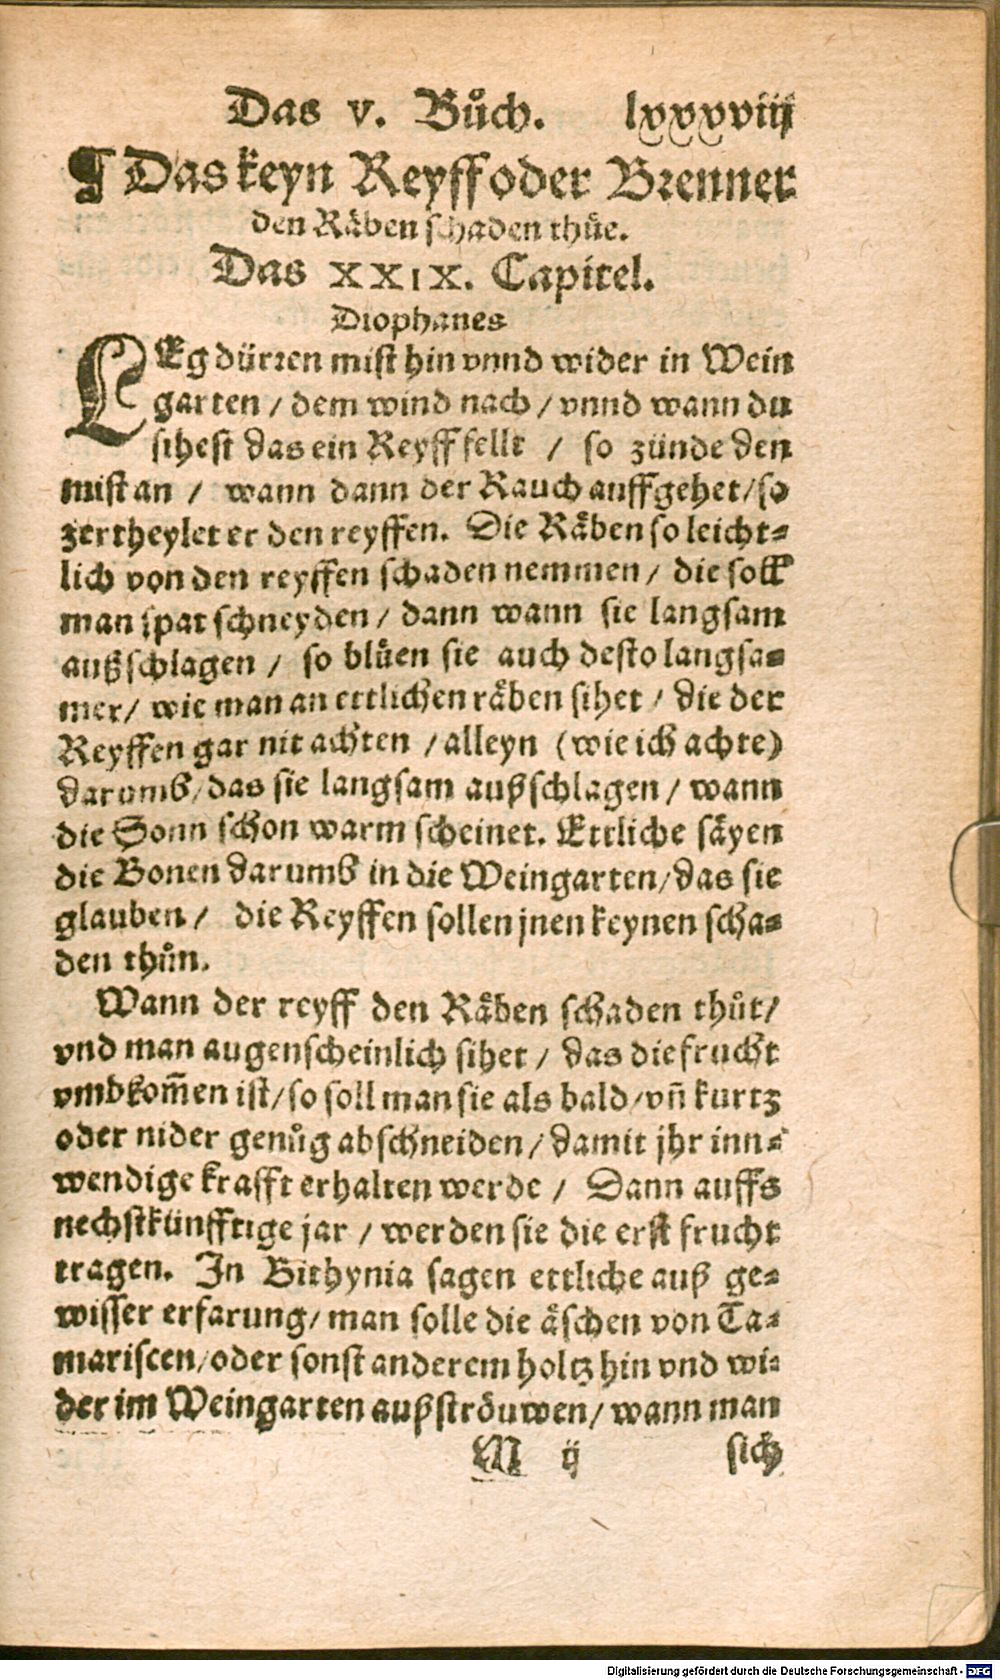 Das v. Bůch. lxxxviij
¶ Das keyn Reyff oder Brenner
den Räben schaden thüe.
Das XXIX. Capitel.
Diophanes
LEg dürren mist hin vnnd wider in Wein
garten / dem wind nach / vnnd wann du
sihest das ein Reyff fellt / so zünde den
mist an / wann dann der Rauch auffgehet / so
zertheylet er den reyffen. Die Räben so leicht⸗
lich von den reyffen schaden nemmen / die soll
man spat schneyden / dann wann sie langsam
außschlagen / so blüen sie auch desto langsa⸗
mer / wie man an ettlichen räben sihet / die der
Reyffen gar nit achten / alleyn (wie ich achte)
darumb / das sie langsam außschlagen / wann
die Sonn schon warm scheinet. Ettliche säyen
die Bonen darumb in die Weingarten / das sie
glauben / die Reyffen sollen jnen keynen scha⸗
den thůn.
Wann der reyff den Räben schaden thůt /
vnd man augenscheinlich sihet / das die frucht
vmbkom̃en ist / so soll man sie als bald / vñ kurtz
oder nider genůg abschneiden / damit jhr inn⸗
wendige krafft erhalten werde / Dann auffs
nechstkünfftige jar / werden sie die erst frucht
tragen. In Bithynia sagen ettliche auß ge⸗
wisser erfarung / man solle die äschen von Ta⸗
mariscen / oder sonst anderem holtz hin vnd wi⸗
der im Weingarten außströuwen / wann man
M ij sich
Digitalisierung gefördert durch die Deutsche Forschungsgemeinschaft - DFG